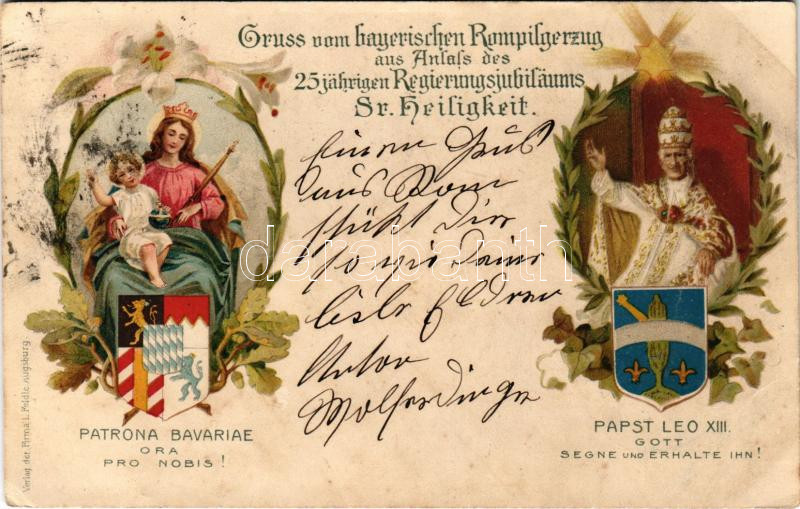 Gruss vom bayerischen Rompilgerzug
aus Anlass des
25jährigen Regierungsjubiläums
Sr. Heiligkeit.
Einen Gruß
aus Rom
Dir
Anton
PATRONA BAVARIAE
ORA
PRO NOBIS!
PAPST LEO XIII.
GOTT
SEGNE UND ERHALTE IHN!
Verlag der Firma L. Poldle, Augsburg.
darabanth